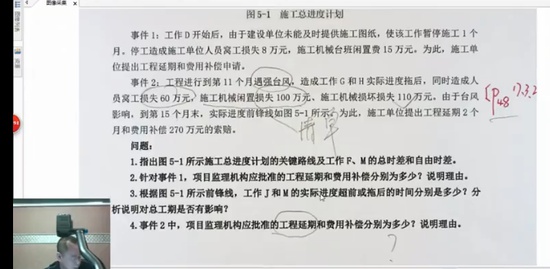 图5-1 施工总进度计划
事件1：工作D开始后，由于建设单位未能及时提供施工图纸，使该工作暂停施工1个
月。停工造成施工单位人员窝工损失8万元，施工机械台班闲置费15万元。为此，施工单
位提出工程延期和费用补偿申请。
事件2：工程进行到第11个月遇强台风，造成工作G和H实际进度拖后，同时造成人
员窝工损失60万元，施工机械闲置损失100万元、施工机械损坏损失110万元。由于台风
影响，到第15个月末，实际进度前锋线如图5-1所示。为此，施工单位提出工程延期2个
月和费用补偿270万元的索赔。
问题：
1.指出图5-1所示施工总进度计划的关键路线及工作F、M的总时差和自由时差。
2.针对事件1，项目监理机构应批准的工程延期和费用补偿分别为多少？说明理由。
3.根据图5-1所示前锋线，工作J和M的实际进度超前或拖后的时间分别是多少？分
析说明对总工期是否有影响？
4.事件2中，项目监理机构应批准的工程延期和费用补偿分别为多少？说明理由。
?